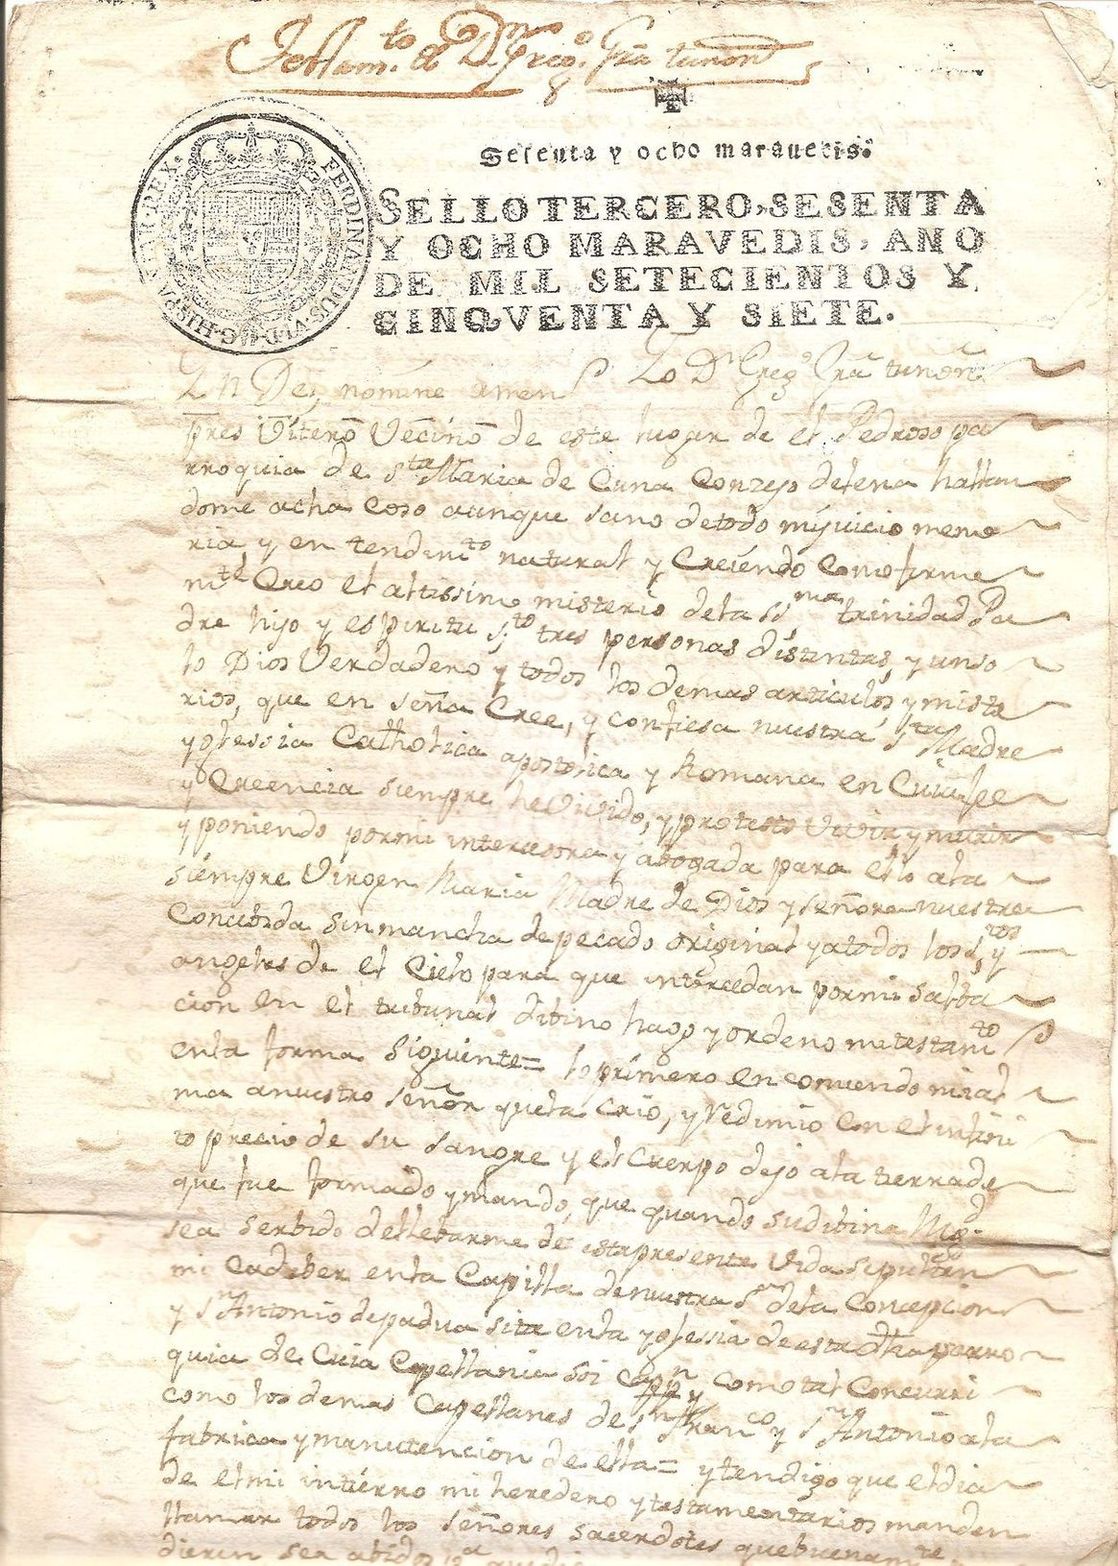 Testam.to de Dn Greg.o Gra tuñon
8
Sesenta y ocho marauedis.
SELLO TERCERO, SESENTA
Y OCHO MARAVEDIS, AÑO
DE MIL SETECIENTOS Y
CINQVENTA Y SIETE.
FERDINANDUS·VI·D·G·HISPANIAR·REX·
En Dei nomine amen Yo Dn Greg.o Gra tuñon
presvitero Vecino de este lugar de el Pedroso pa
rroquia de Sta Maria de Cuna Conzejo de lena hallan
dome achacoso aunque sano de todo mi juicio memo
ria, y entendim.to natural y Creiendo Como firme
m.te Creo el altissimo misterio de la SSma trinidad Pa
dre hijo y espiritu S.to tres personas distintas, y un so
lo Dios Verdadero y todos los demas articulos y miste
rios, que enseña Cree, y confiesa nuestra Sta Madre
yglessia Catholica apostolica y Romana en Cuia fee
y Creencia siempre he Vivido, y protesto Vivir y murir
y poniendo por mi intercesora y abogada para ello a la
siempre Virgen Maria Madre de Dios y señora nuestra
Concebida sin mancha de pecado original y a todos los S.tos y
angeles de el Cielo para que intercedan por mi salba
cion en el tribunal dibino hago y ordeno mi testam.to
en la forma siguiente= lo primero encomiendo mi al
ma a nuestro señor que la Crio, y Redimio con el infini
to precio de su sangre y el cuerpo dejo a la tierra de
que fue formado y mando, que quando su dibina Mag.d
sea serbido de llebarme de esta presente vida sepulten
mi Cadaber en la Capilla de nuestra S.ra de la Concepcion
y Sn Antonio de padua sita en la yglessia de esta dha parro
quia de Cuia Capellania soi cappn y como tal Concurri
como los demas Capellanes de Sn Fran.co y Sn Antonio a la
fabrica y manutencion de ella= y tendigo que el dia
de el mi intierro mi heredero y testamentarios manden
llamar todos los señores sacerdotes que buenam.te